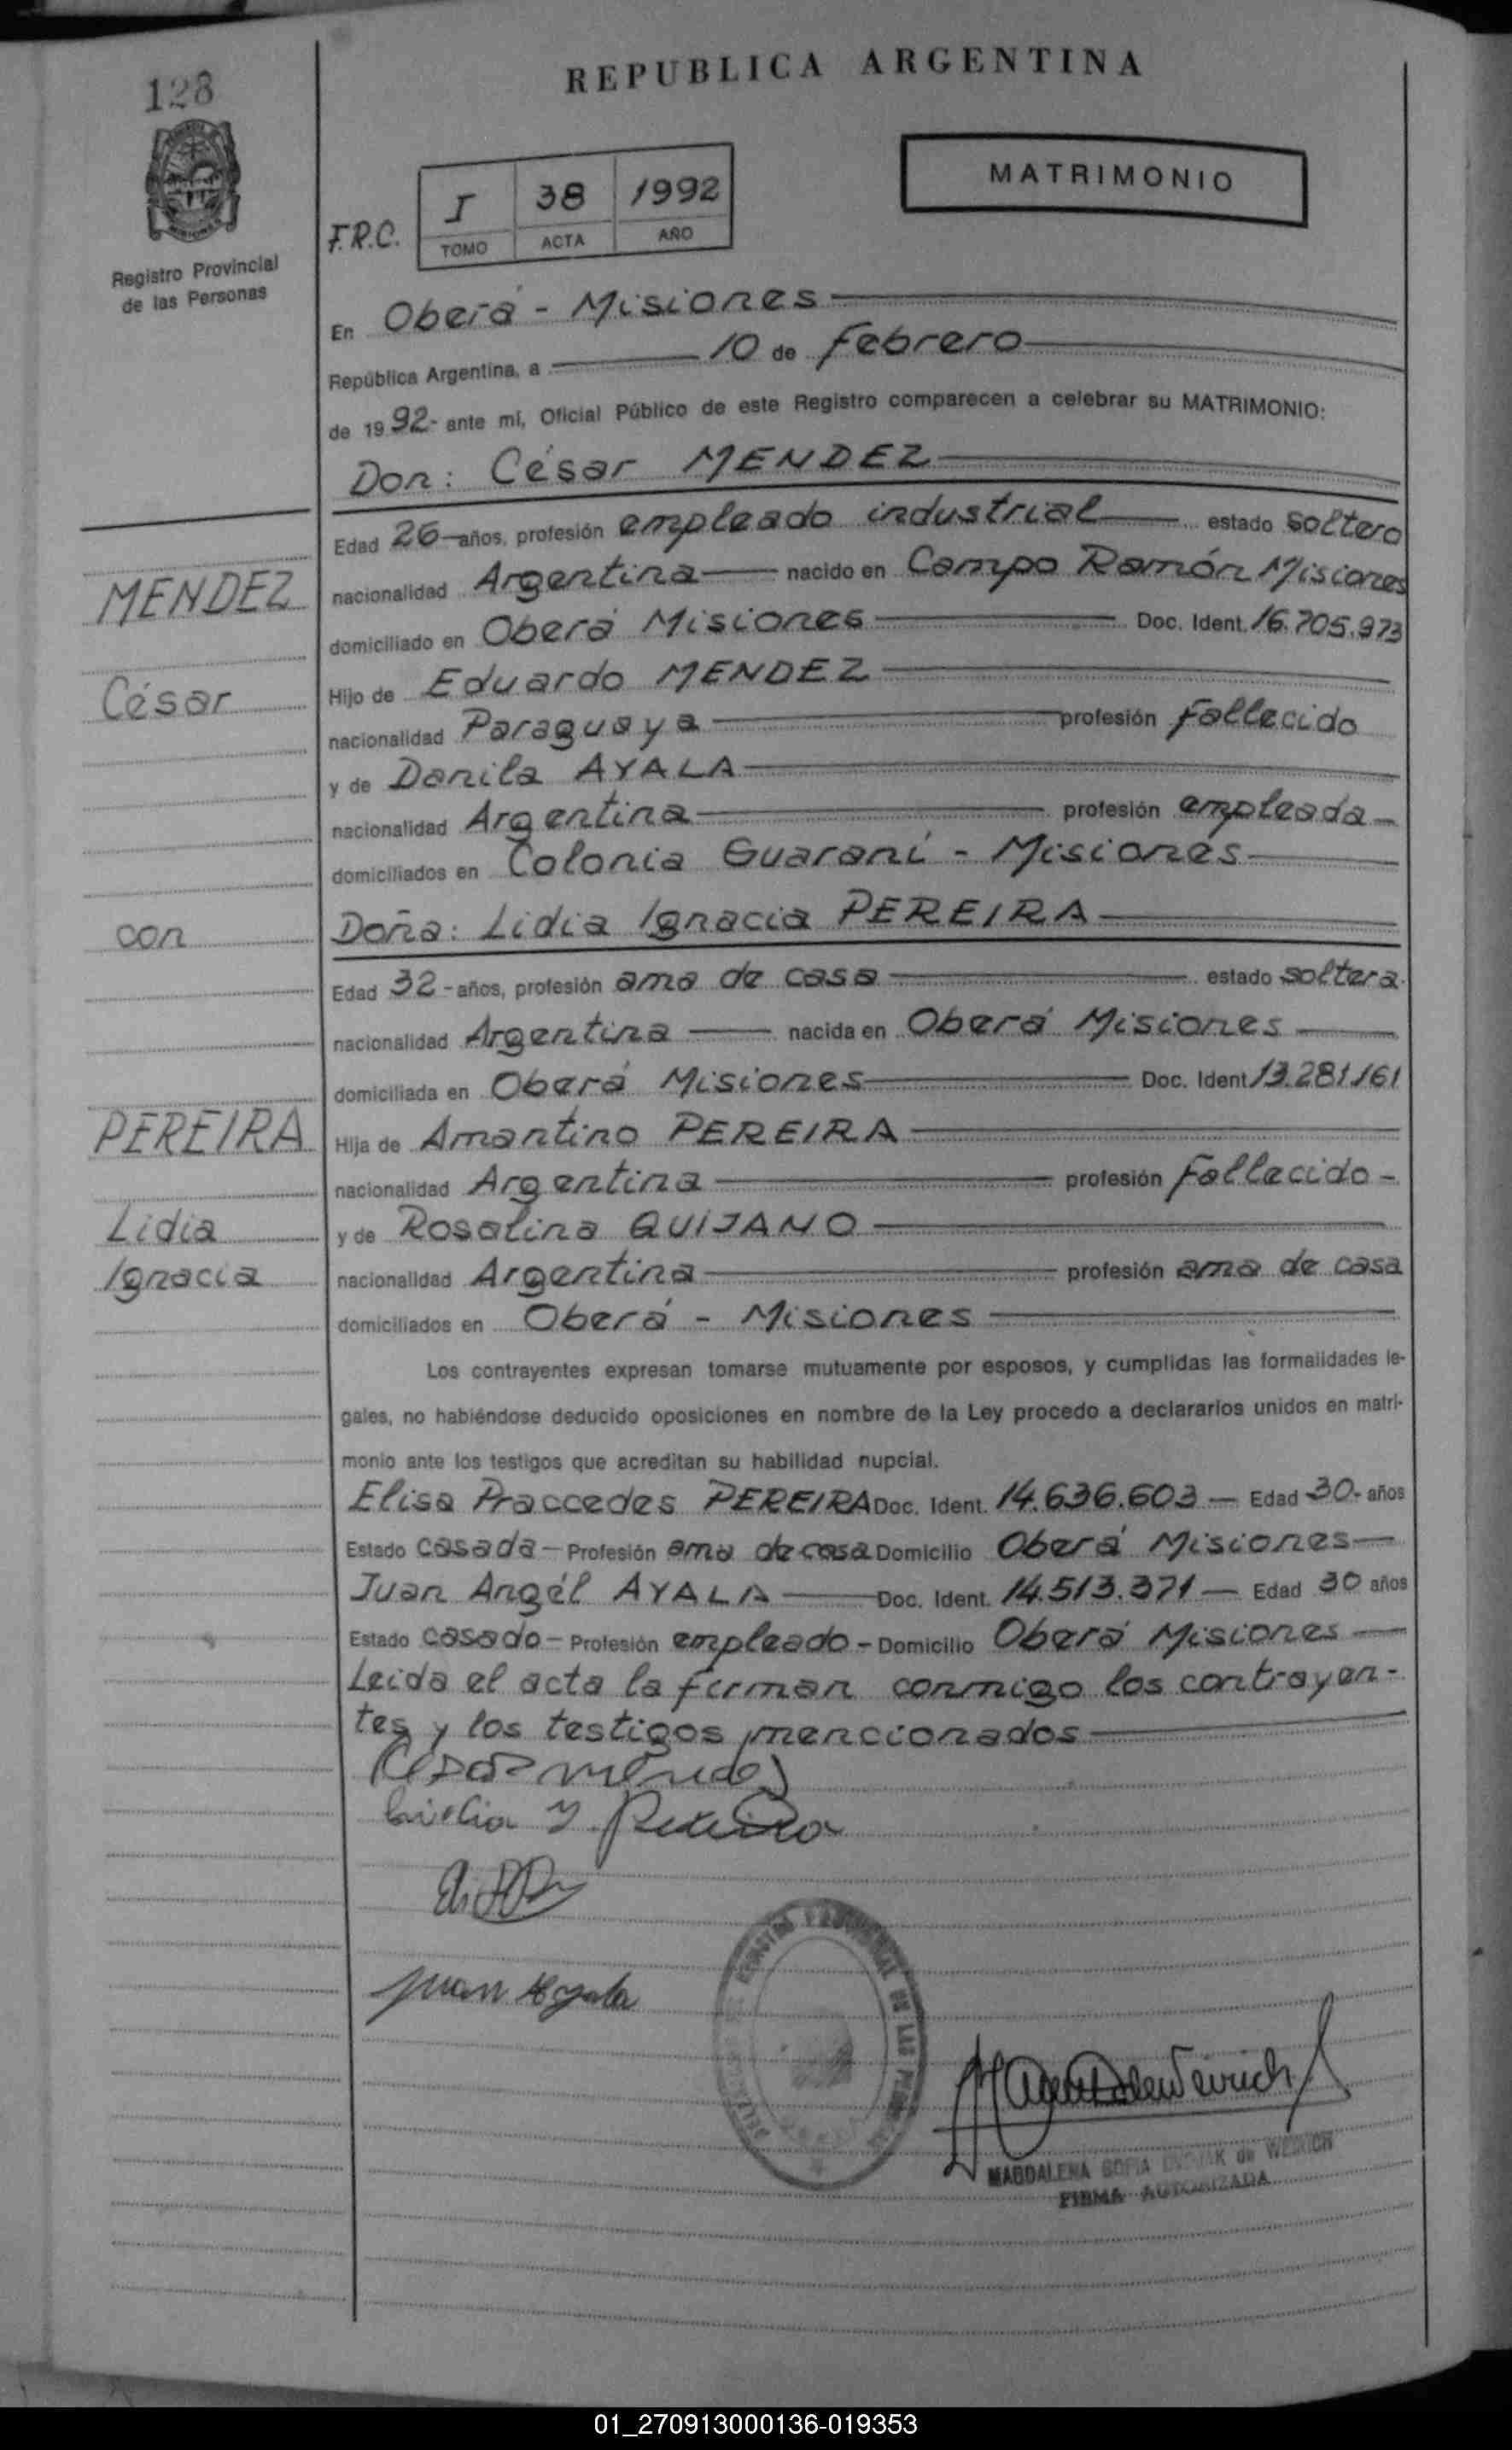 128
REPUBLICA ARGENTINA
MATRIMONIO
F.R.C.
I 38 1992
TOMO ACTA AÑO
Registro Provincial
de las Personas
En Oberá - Misiones
República Argentina, a 10 de Febrero
de 1992- ante mí, Oficial Público de este Registro comparecen a celebrar su MATRIMONIO:
Don: César MENDEZ
Edad 26 años, profesión empleado industrial estado soltero
nacionalidad Argentina nacido en Campo Ramón Misiones
domiciliado en Oberá Misiones Doc. Ident. 16.705.973
Hijo de Eduardo MENDEZ
nacionalidad Paraguaya profesión Fallecido
y de Danila AYALA
nacionalidad Argentina profesión empleada
domiciliados en Colonia Guaraní - Misiones
MENDEZ
César
con
PEREIRA
Lidia
Ignacia
Doña: Lidia Ignacia PEREIRA
Edad 32 - años, profesión ama de casa estado soltera
nacionalidad Argentina nacida en Oberá Misiones
domiciliada en Oberá Misiones Doc. Ident 13.281.161
Hija de Amantino PEREIRA
nacionalidad Argentina profesión Fallecido -
y de Rosalina QUIJANO
nacionalidad Argentina profesión ama de casa
domiciliados en Oberá - Misiones
Los contrayentes expresan tomarse mutuamente por esposos, y cumplidas las formalidades le-
gales, no habiéndose deducido oposiciones en nombre de la Ley procedo a declararlos unidos en matri-
monio ante los testigos que acreditan su habilidad nupcial.
Elisa Praccedes PEREIRA Doc. Ident. 14.636.603 - Edad 30 - años
Estado casada - Profesión ama de casa Domicilio Oberá Misiones
Juan Angél AYALA Doc. Ident. 14.513.371 - Edad 30 años
Estado casado - Profesión empleado - Domicilio Oberá Misiones
Leida el acta la firman conmigo los contrayen-
tes y los testigos mencionados
César Mendez
Lidia Y. Pereira
Juan Ayala
MAGDALENA SOFIA de WEIRICH
FIRMA AUTORIZADA
01_270913000136-019353